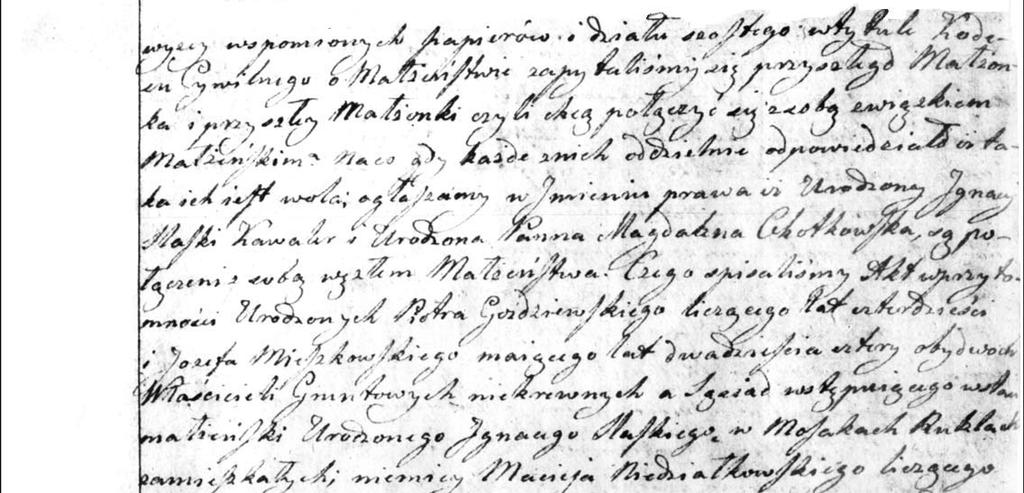 wyżey wspomionych papierów i działu szostego w tytule Kode-
su Cywilnego o Małżeństwie zapytaliśmy się przyszłego Małżon-
ka i przyszłey Małżonki czyli chcą połączyć się z sobą związkiem
Małżeńskim? na co gdy każde z nich oddzielnie odpowiedziało iż ta-
ka ich iest wola; ogłaszamy w Jmieniu prawa iż Urodzony Jgnacy
Kawaler i Urodzona Panna Magdalena Chotkowska, są po-
łączeni z sobą węzłem Małżeństwa. Czego spisaliśmy Akt w przyto-
mności Urodzonych Piotra Goździewskiego liczącego lat czterdzieści
i Jozefa Mieszkowskiego maiącego lat dwadzieścia cztery obydwoch
Właścicieli Gruntowych niekrewnych a Sąsiad wstępuiącego w stan
małżeński Urodzonego Jgnacego w Mosakach Ruklach
zamieszkałych; niemniey Macieja Niedziałkowskiego liczącego